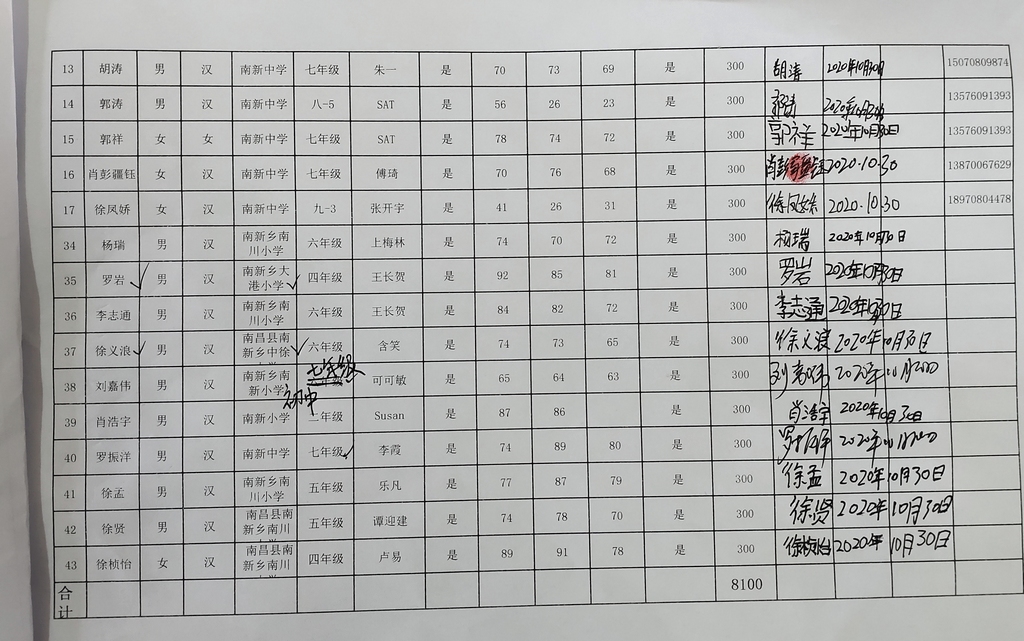 13 胡涛 男 汉 南新中学 七年级 朱一 是 70 73 69 是 300 胡涛 2020年10月30日 15070809874
14 郭涛 男 汉 南新中学 八-5 SAT 是 56 26 23 是 300 郭涛 13576091393
15 郭祥 女 女 南新中学 七年级 SAT 是 78 74 72 是 300 郭祥 2020年10月30日 13576091393
16 肖彭疆钰 女 汉 南新中学 七年级 傅琦 是 70 76 68 是 300 2020.10.30 13870067629
17 徐凤娇 女 汉 南新中学 九-3 张开宇 是 41 26 31 是 300 徐凤娇 2020.10.30 18970804478
34 杨瑞 男 汉 南新乡南川小学 六年级 上梅林 是 74 70 72 是 300 杨瑞 2020年10月30日
35 罗岩 男 汉 南新乡大港小学 四年级 王长贺 是 92 85 81 是 300 罗岩 2020年10月30日
36 李志通 男 汉 南新乡南川小学 六年级 王长贺 是 84 82 72 是 300 李志通 2020年10月30日
37 徐义浪 男 汉 南昌县南新乡中徐 六年级 含笑 是 74 73 65 是 300 徐义浪 2020年10月30日
38 刘嘉伟 男 汉 南新乡南新小学 初中 七年级 可可敏 是 65 64 63 是 300 刘嘉伟
39 肖浩宇 男 汉 南新小学 二年级 Susan 是 87 86 是 300 肖浩宇 2020年10月30日
40 罗振洋 男 汉 南新中学 七年级 李霞 是 74 89 80 是 300
41 徐孟 男 汉 南新乡南川小学 五年级 乐凡 是 77 87 79 是 300 徐孟 2020年10月30日
42 徐贤 男 汉 南昌县南新乡南川 五年级 谭迎建 是 74 78 70 是 300 徐贤 2020年10月30日
43 徐桢怡 女 汉 南昌县南新乡南川 四年级 卢易 是 89 91 78 是 300 徐桢怡 2020年10月30日
合计 8100